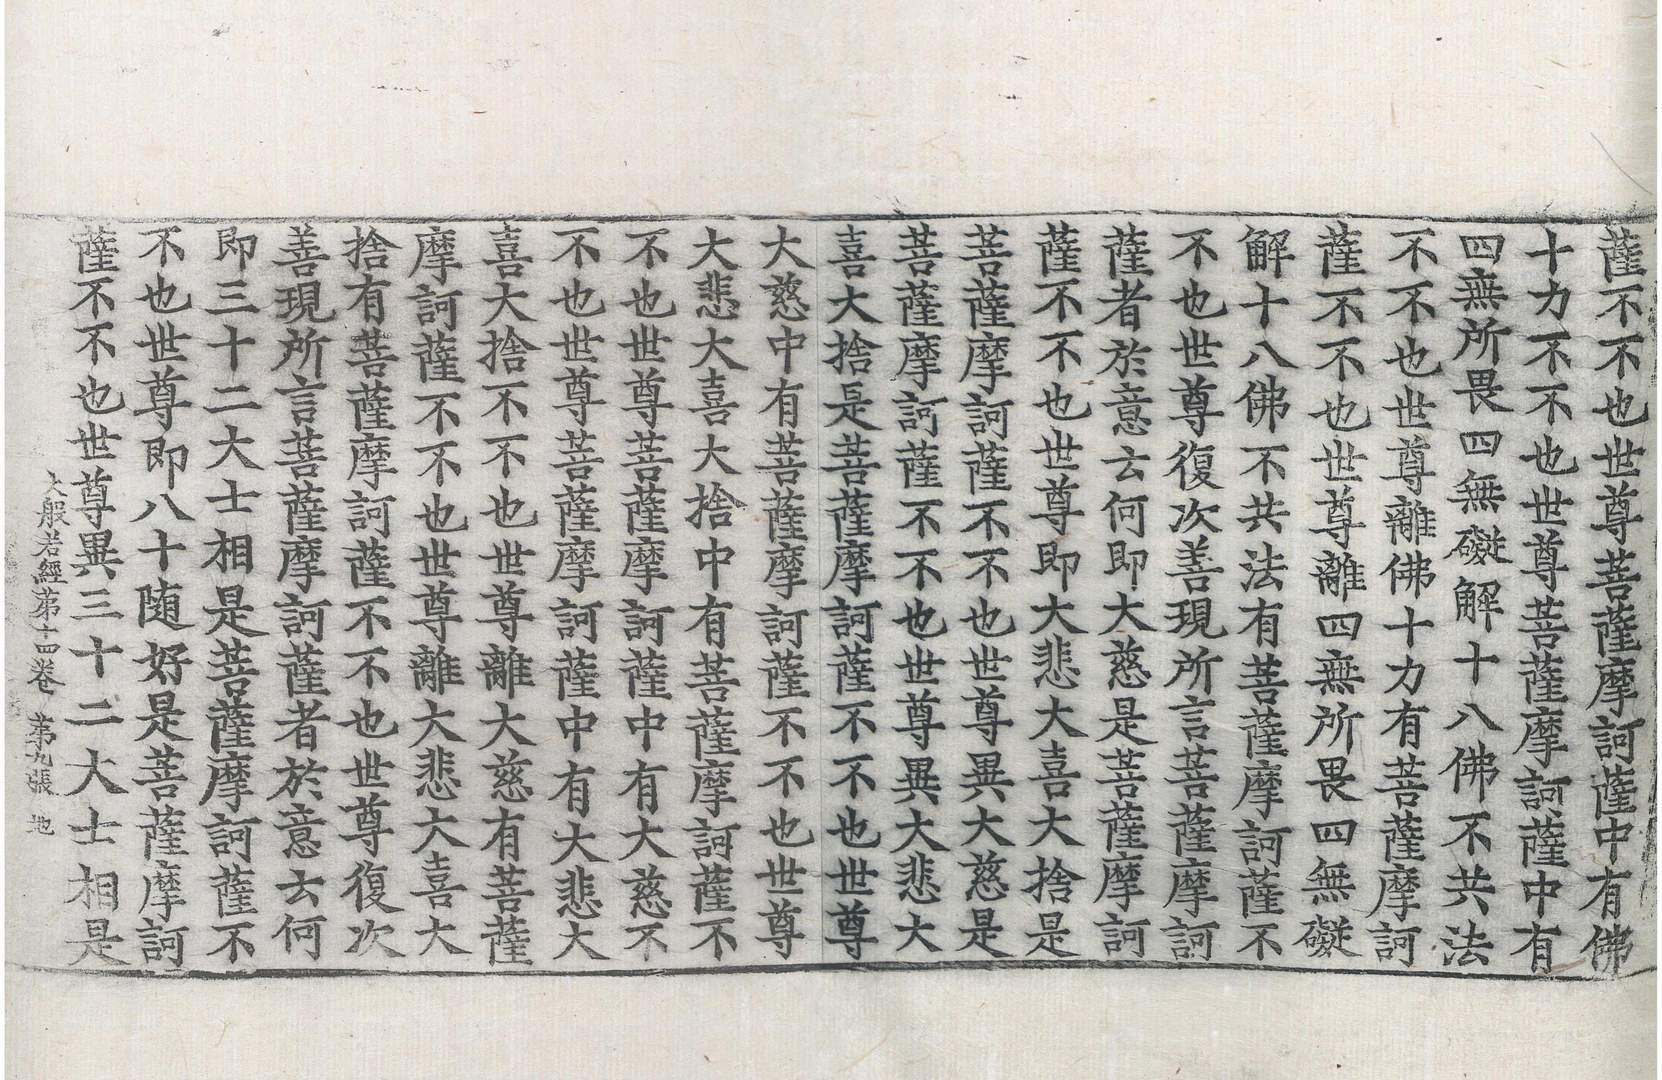 薩不不也世尊菩薩摩訶薩中有佛
十力不不也世尊菩薩摩訶薩中有
四無所畏四無礙解十八佛不共法
不不也世尊離佛十力有菩薩摩訶
薩不不也世尊離四無所畏四無礙
解十八佛不共法有菩薩摩訶薩不
不也世尊復次善現所言菩薩摩訶
薩者於意云何即大慈是菩薩摩訶
薩不不也世尊即大悲大喜大捨是
菩薩摩訶薩不不也世尊異大慈是
菩薩摩訶薩不不也世尊異大悲大
喜大捨是菩薩摩訶薩不不也世尊
大慈中有菩薩摩訶薩不不也世尊
大悲大喜大捨中有菩薩摩訶薩不
不也世尊菩薩摩訶薩中有大慈不
不也世尊菩薩摩訶薩中有大悲大
喜大捨不不也世尊離大慈有菩薩
摩訶薩不不也世尊離大悲大喜大
捨有菩薩摩訶薩不不也世尊復次
善現所言菩薩摩訶薩者於意云何
即三十二大士相是菩薩摩訶薩不
不也世尊即八十随好是菩薩摩訶
薩不不也世尊異三十二大士相是
大般若經苐十四卷 苐九張 地